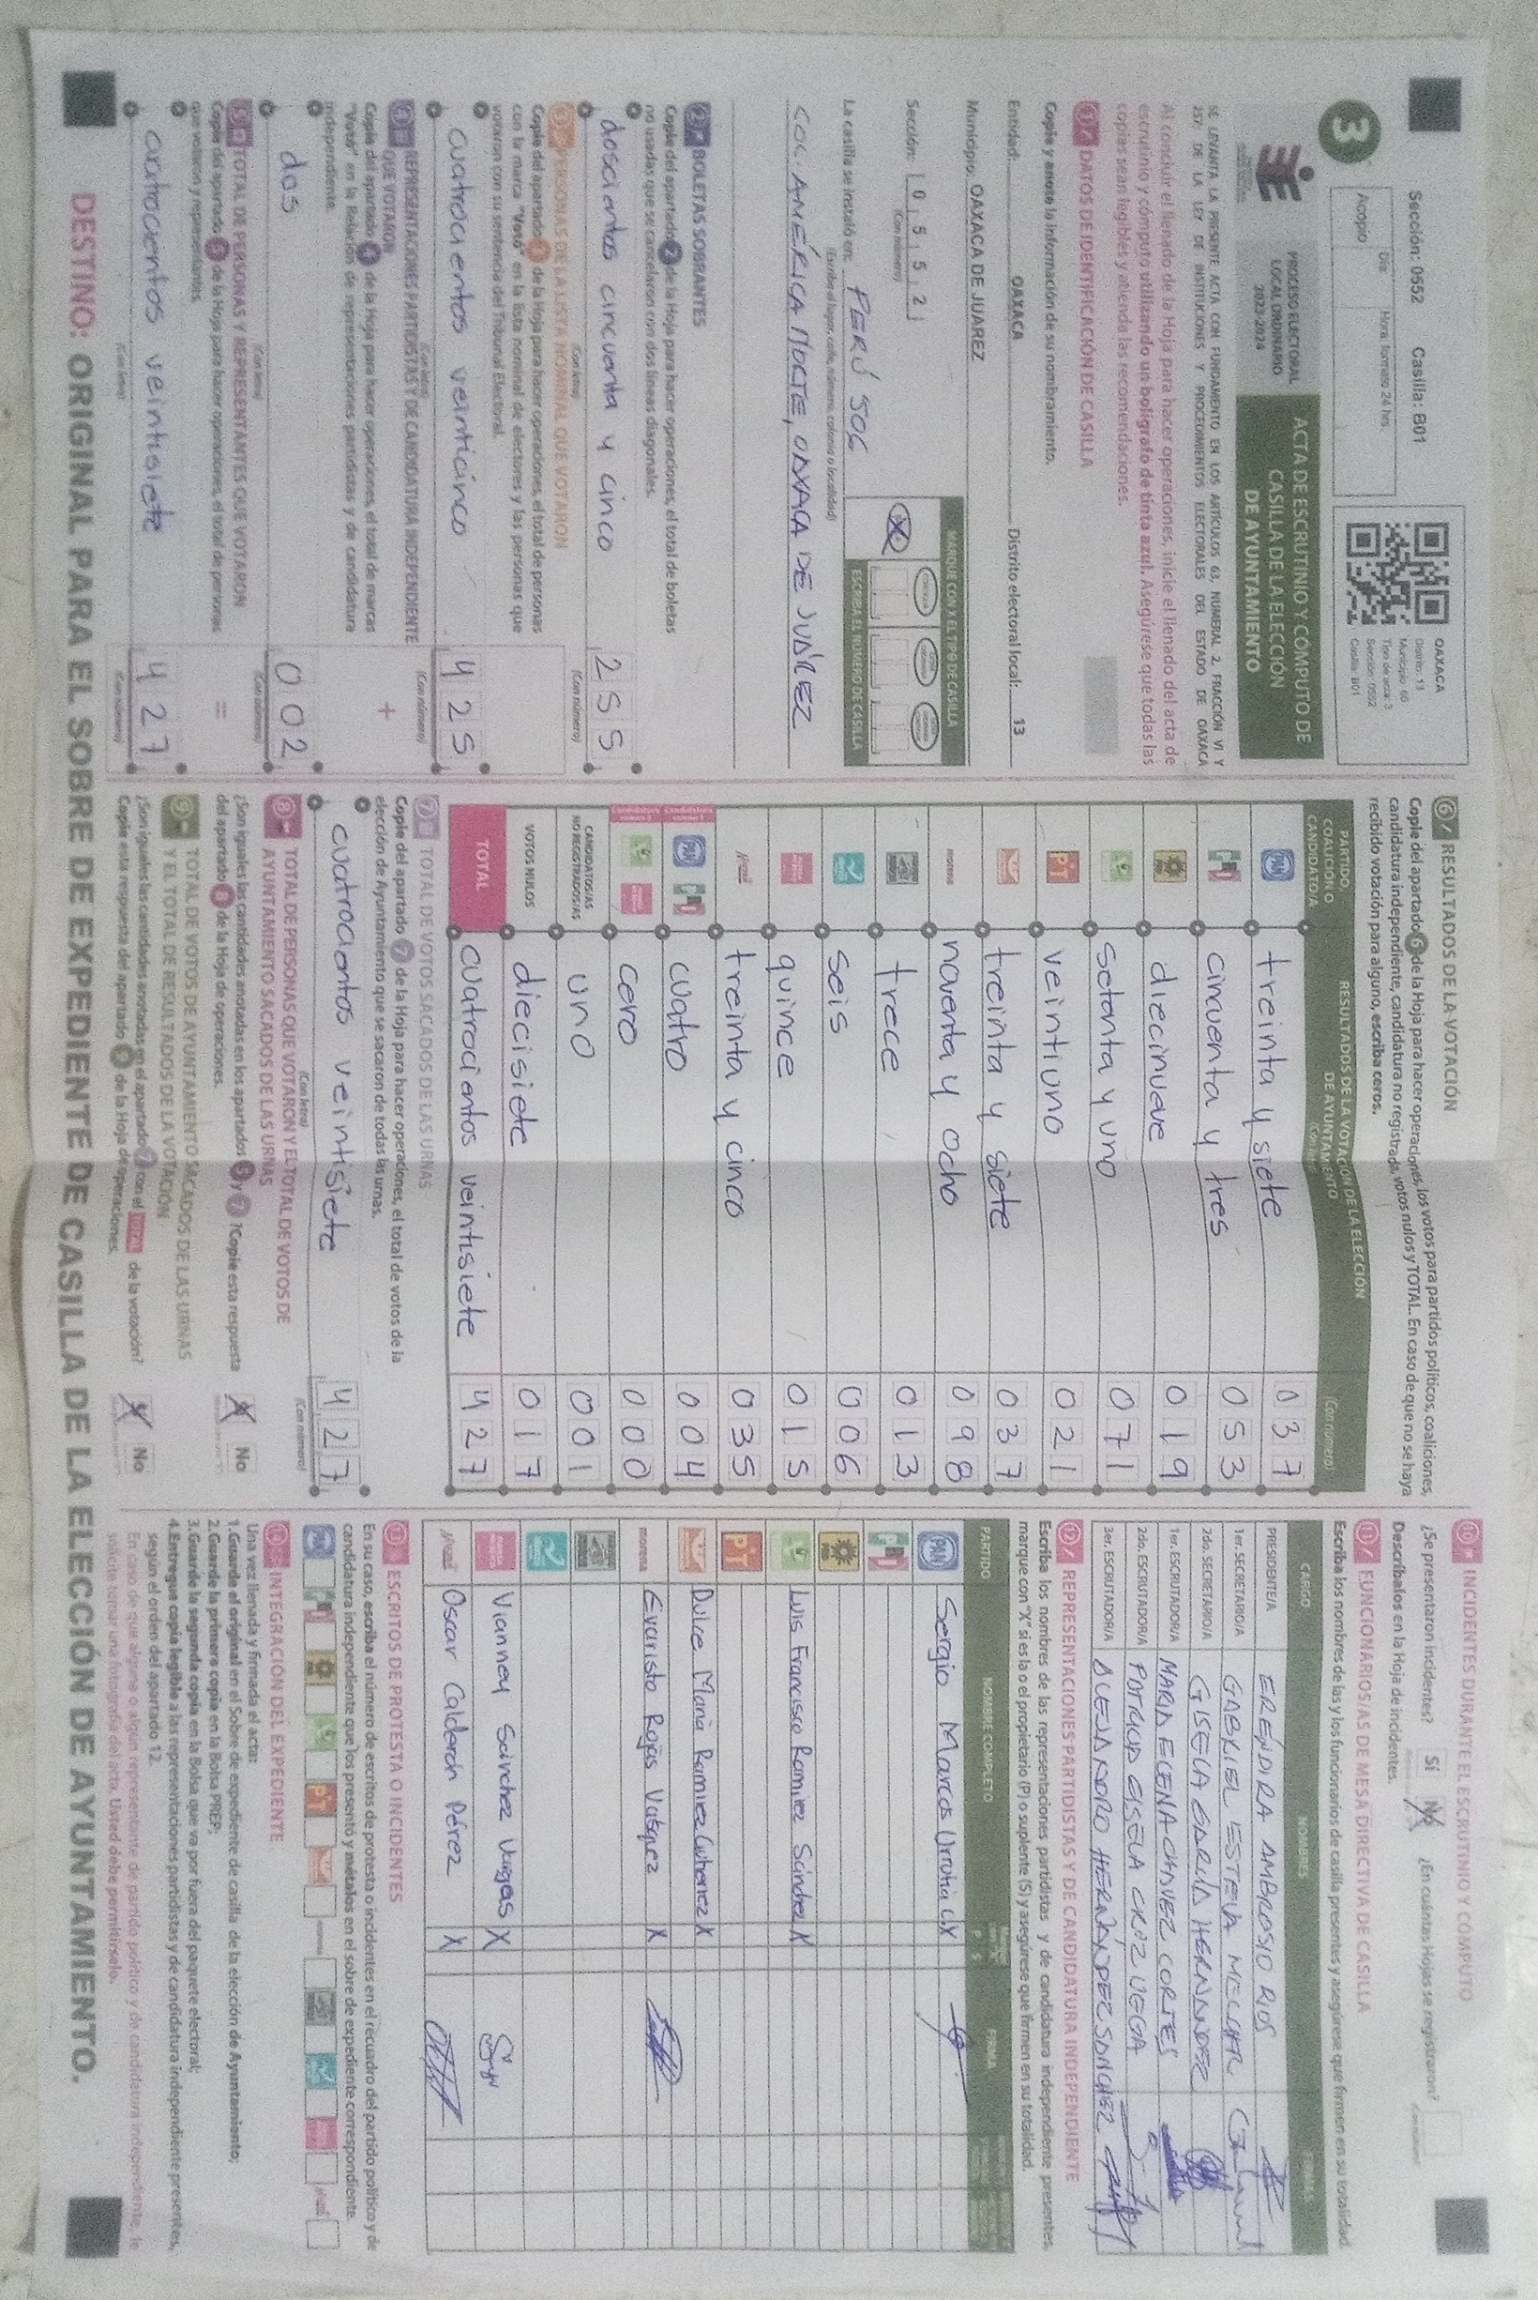 Sección: 0552 Casilla: B01
OAXACA
Distrito: 13
Municipio: 60
Tipo de acta: 3
Sección: 0552
Casilla: B01
3
Acopio
Día
Hora: formato 24 hrs.
PROCESO ELECTORAL
LOCAL ORDINARIO
2023-2024
ACTA DE ESCRUTINIO Y CÓMPUTO DE
CASILLA DE LA ELECCIÓN
DE AYUNTAMIENTO
SE LEVANTA LA PRESENTE ACTA CON FUNDAMENTO EN LOS ARTÍCULOS 63, NUMERAL 2, FRACCIÓN VI Y
257; DE LA LEY DE INSTITUCIONES Y PROCEDIMIENTOS ELECTORALES DEL ESTADO DE OAXACA
Al concluir el llenado de la Hoja para hacer operaciones, inicie el llenado del acta de
escrutinio y cómputo utilizando un bolígrafo de tinta azul. Asegúrese que todas las
copias sean legibles y atienda las recomendaciones.
1 DATOS DE IDENTIFICACIÓN DE CASILLA
Copie y anote la información de su nombramiento.
Entidad: OAXACA Distrito electoral local: 13
Municipio: OAXACA DE JUAREZ
Sección: 0552
(Con número)
MARQUE CON X EL TIPO DE CASILLA
ESCRIBA EL NÚMERO DE CASILLA
La casilla se instaló en: PERÚ 506
(Escriba el lugar, calle, número, colonia o localidad)
COL. AMÉRICA NORTE, OAXACA DE JUÁREZ
2 BOLETAS SOBRANTES
Copie del apartado 2 de la Hoja para hacer operaciones, el total de boletas
no usadas que se cancelaron con dos líneas diagonales.
doscientos cincuenta y cinco 255
(Con letra) (Con número)
3 PERSONAS DE LA LISTA NOMINAL QUE VOTARON
Copie del apartado 3 de la Hoja para hacer operaciones, el total de personas
con la marca "Votó" en la lista nominal de electores y las personas que
votaron con su sentencia del Tribunal Electoral.
cuatrocientos veinticinco 425
(Con letra) (Con número)
4 REPRESENTACIONES PARTIDISTAS Y DE CANDIDATURA INDEPENDIENTE
QUE VOTARON +
Copie del apartado 4 de la Hoja para hacer operaciones, el total de marcas
"Votó" en la Relación de representaciones partidistas y de candidatura
independiente.
dos 002
(Con letra) (Con número)
5 TOTAL DE PERSONAS Y REPRESENTANTES QUE VOTARON
Copie del apartado 5 de la Hoja para hacer operaciones, el total de personas =
que votaron y representantes.
cuatrocientos veintisiete 427
(Con letra) (Con número)
6 RESULTADOS DE LA VOTACIÓN
Copie del apartado 6 de la Hoja para hacer operaciones, los votos para partidos políticos, coaliciones,
candidatura independiente, candidatura no registrada, votos nulos y TOTAL. En caso de que no se haya
recibido votación para alguno, escriba ceros.
PARTIDO,
COALICIÓN O
CANDIDATO/A
RESULTADOS DE LA VOTACIÓN DE LA ELECCIÓN
DE AYUNTAMIENTO
(Con letra)
(Con número)
PAN treinta y siete 037
PRI cincuenta y tres 053
PRD diecinueve 019
setenta y uno 071
PT veintiuno 021
treinta y siete 037
morena noventa y ocho 098
trece 013
seis 006
quince 015
treinta y cinco 035
PAN PRI cuatro 004
cero 000
CANDIDATOS/AS
NO REGISTRADOS/AS uno 001
VOTOS NULOS diecisiete 017
TOTAL cuatrocientos veintisiete 427
7 TOTAL DE VOTOS SACADOS DE LAS URNAS
Copie del apartado 7 de la Hoja para hacer operaciones, el total de votos de la
elección de Ayuntamiento que se sacaron de todas las urnas.
cuatrocientos veintisiete 427
(Con letra) (Con número)
8 TOTAL DE PERSONAS QUE VOTARON Y EL TOTAL DE VOTOS DE
AYUNTAMIENTO SACADOS DE LAS URNAS
¿Son iguales las cantidades anotadas en los apartados 5 y 7? Copie esta respuesta
del apartado 8 de la Hoja de operaciones. No
9 TOTAL DE VOTOS DE AYUNTAMIENTO SACADOS DE LAS URNAS
Y EL TOTAL DE RESULTADOS DE LA VOTACIÓN
¿Son iguales las cantidades anotadas en el apartado 7 con el TOTAL de la votación?
Copie esta respuesta del apartado 9 de la Hoja de operaciones. No
10 INCIDENTES DURANTE EL ESCRUTINIO Y CÓMPUTO
¿Se presentaron incidentes? Sí No ¿En cuántas Hojas se registraron?
Descríbalos en la Hoja de incidentes.
11 FUNCIONARIOS/AS DE MESA DIRECTIVA DE CASILLA
Escriba los nombres de las y los funcionarios de casilla presentes y asegúrese que firmen en su totalidad.
CARGO NOMBRES FIRMAS
PRESIDENTE/A ERÉNDIRA AMBROSIO RIOS
1er. SECRETARIO/A GABRIEL ESTEVA MELCHOR
2do. SECRETARIO/A GISELA GARCÍA HERNÁNDEZ
1er. ESCRUTADOR/A MARIA ELENA CHAVEZ CORTES
2do. ESCRUTADOR/A PATRICIA GISELA CRUZ VEGA
3er. ESCRUTADOR/A ALEJANDRO HERNÁNDEZ SANCHEZ
12 REPRESENTACIONES PARTIDISTAS Y DE CANDIDATURA INDEPENDIENTE
Escriba los nombres de las representaciones partidistas y de candidatura independiente presentes,
marque con "X" si es la o el propietario (P) o suplente (S) y asegúrese que firmen en su totalidad.
PARTIDO NOMBRE COMPLETO P S FIRMA
PAN Sergio Marcos Urrutia X
Luis Francisco Ramírez Sánchez X
Dulce María Ramírez Gutierrez X
morena Evaristo Rojas Vásquez X
Vianney Sánchez Vargas X
Oscar Calderón Pérez X
13 ESCRITOS DE PROTESTA O INCIDENTES
En su caso, escriba el número de escritos de protesta o incidentes en el recuadro del partido político y de
candidatura independiente que los presentó y métalos en el sobre de expediente correspondiente.
14 INTEGRACIÓN DEL EXPEDIENTE
Una vez llenada y firmada el acta:
1.Guarde el original en el Sobre de expediente de casilla de la elección de Ayuntamiento;
2.Guarde la primera copia en la Bolsa PREP;
3.Guarde la segunda copia en la Bolsa que va por fuera del paquete electoral;
4.Entregue copia legible a las representaciones partidistas y de candidatura independiente presentes,
según el orden del apartado 12.
En caso de que alguna o algún representante de partido político y de candidatura independiente, le
solicite tomar una fotografía del acta. Usted debe permitírselo.
DESTINO: ORIGINAL PARA EL SOBRE DE EXPEDIENTE DE CASILLA DE LA ELECCIÓN DE AYUNTAMIENTO.